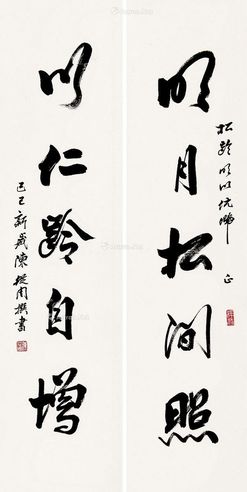 明月松间照
松龄明以伉俪 正
以仁龄自增
己巳新岁陈从周撰书